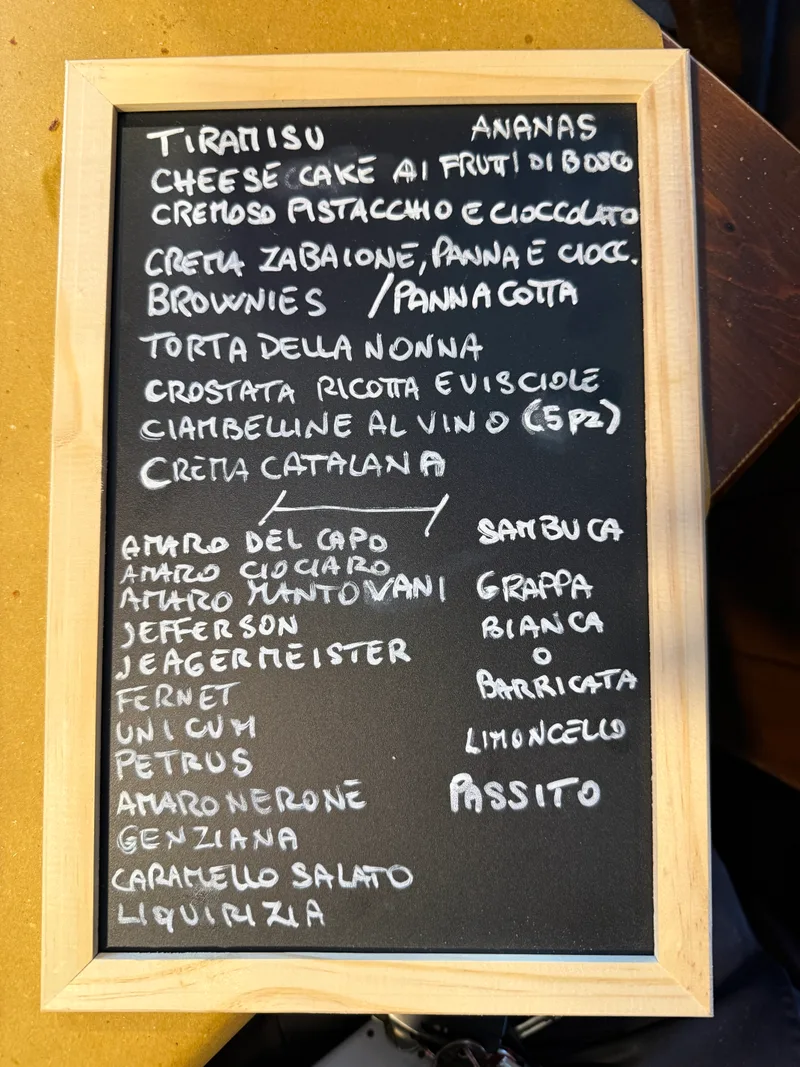 TIRAMISU ANANAS
CHEESE CAKE AI FRUTTI DI BOSCO
CREMOSO PISTACCHIO E CIOCCOLATO
CREMA ZABAIONE, PANNA E CIOCC.
BROWNIES / PANNA COTTA
TORTA DELLA NONNA
CROSTATA RICOTTA E VISCIOLE
CIAMBELLINE AL VINO (5 PZ)
CREMA CATALANA
AMARO DEL CAPO
AMARO CIOCIARO
AMARO MANTOVANI
JEFFERSON
JEAGERMEISTER
FERNET
UNICUM
PETRUS
AMARO NERONE
GENZIANA
CARAMELLO SALATO
LIQUIRIZIA
SAMBUCA
GRAPPA
BIANCA
O
BARRICATA
LIMONCELLO
PASSITO